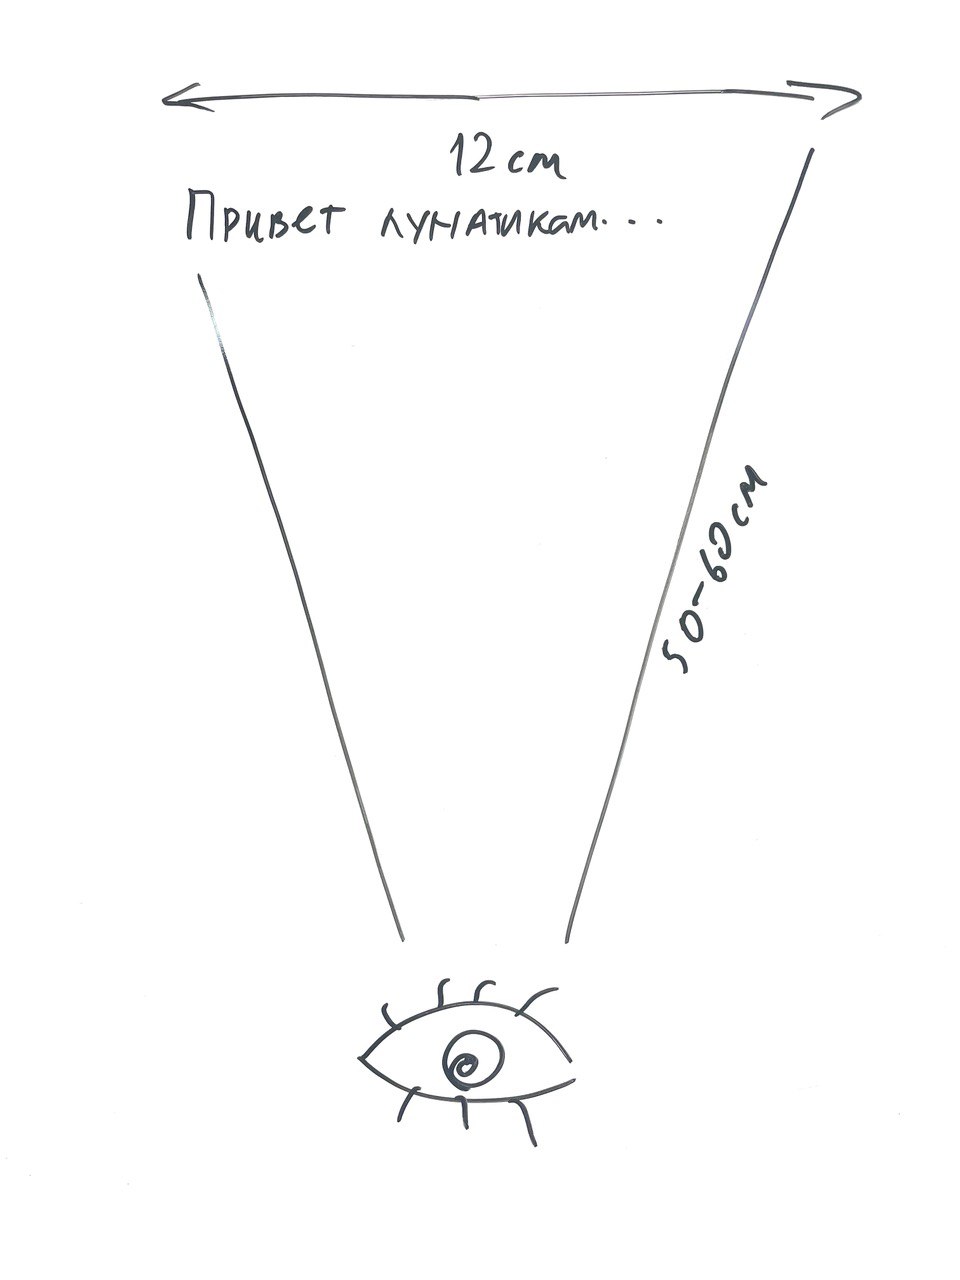 12 см
Привет лунатикам...
50-60 см